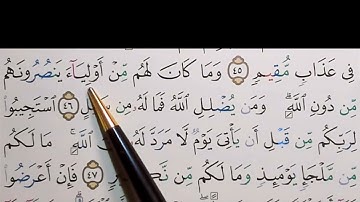 فِى عَذَابٍ مُّقِيمٍ ٤٥ وَمَا كَانَ لَهُم مِّنْ أَوْلِيَآءَ يَنصُرُونَهُم
مِّن دُونِ ٱللَّهِ ۗ وَمَن يُضْلِلِ ٱللَّهُ فَمَا لَهُۥ مِن سَبِيلٍ ٤٦ ٱسْتَجِيبُوا۟
لِرَبِّكُم مِّن قَبْلِ أَن يَأْتِىَ يَوْمٌ لَّا مَرَدَّ لَهُۥ مِنَ ٱللَّهِ ۚ مَا لَكُم
مِّن مَّلْجَإٍ يَوْمَئِذٍ وَمَا لَكُم مِّن نَّكِيرٍ ٤٧ فَإِنْ أَعْرَضُوا۟